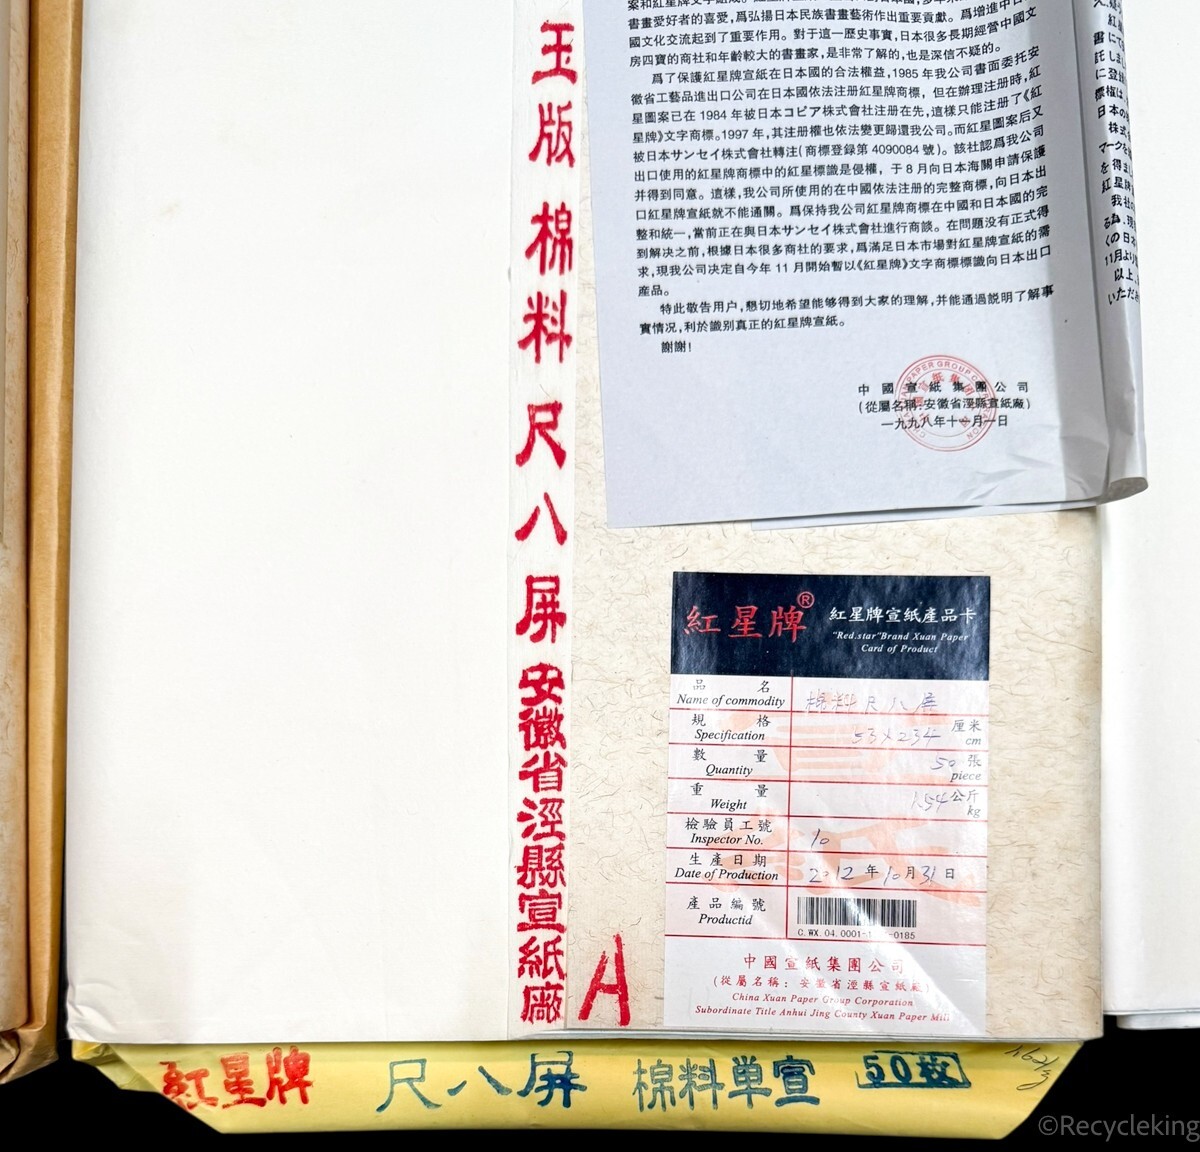 玉版棉料尺八屏安徽省涇縣宣紙廠
書畫愛好者的喜愛，爲弘揚日本民族書畫藝術作出重要貢獻。爲增進中日
國文化交流起到了重要作用。對于這一歷史事實，日本很多長期經營中國文
房四寶的商社和年齡較大的書畫家，是非常了解的，也是深信不疑的。
爲了保護紅星牌宣紙在日本國的合法權益，1985年我公司書面委托安
徽省工藝品進出口公司在日本國依法注册紅星牌商標，但在辦理注册時，紅
星圖案已在1984年被日本コピア株式會社注册在先，這樣只能注册了《紅
星牌》文字商標。1997年，其注册權也依法變更歸還我公司。而紅星圖案后又
被日本サンセイ株式會社轉注(商標登録第4090084號)。該社認爲我公司
出口使用的紅星牌商標中的紅星標識是侵權，于8月向日本海關申請保護
并得到同意。這樣，我公司所使用的在中國依法注册的完整商標，向日本出
口紅星牌宣紙就不能通關。爲保持我公司紅星牌商標在中國和日本國的完
整和統一，當前正在與日本サンセイ株式會社進行商談。在問題没有正式得
到解决之前，根據日本很多商社的要求，爲滿足日本市場對紅星牌宣紙的需
求，現我公司决定自今年11月開始暫以《紅星牌》文字商標標識向日本出口
產品。
特此敬告用户，懇切地希望能够得到大家的理解，并能通過説明了解事
實情况，利於識别真正的紅星牌宣紙。
謝謝！
中國宣紙集團公司
(從屬名稱:安徽省涇縣宣紙廠)
一九九八年十一月一日
紅星牌®
紅星牌宣紙產品卡
"Red.star"Brand Xuan Paper
Card of Product
品名 棉料尺八屏
Name of commodity
規格 53×234 厘米
Specification cm
數量 50 張
Quantity piece
重量 1.54 公斤
Weight kg
檢驗員工號 10
Inspector No.
生產日期 2012年10月31日
Date of Production
產品編號
Productid
中國宣紙集團公司
(從屬名稱：安徽省涇縣宣紙廠)
China Xuan Paper Group Corporation
Subordinate Title Anhui Jing County Xuan Paper Mill
A
紅星牌 尺八屏 棉料単宣 50枚
©Recycleking